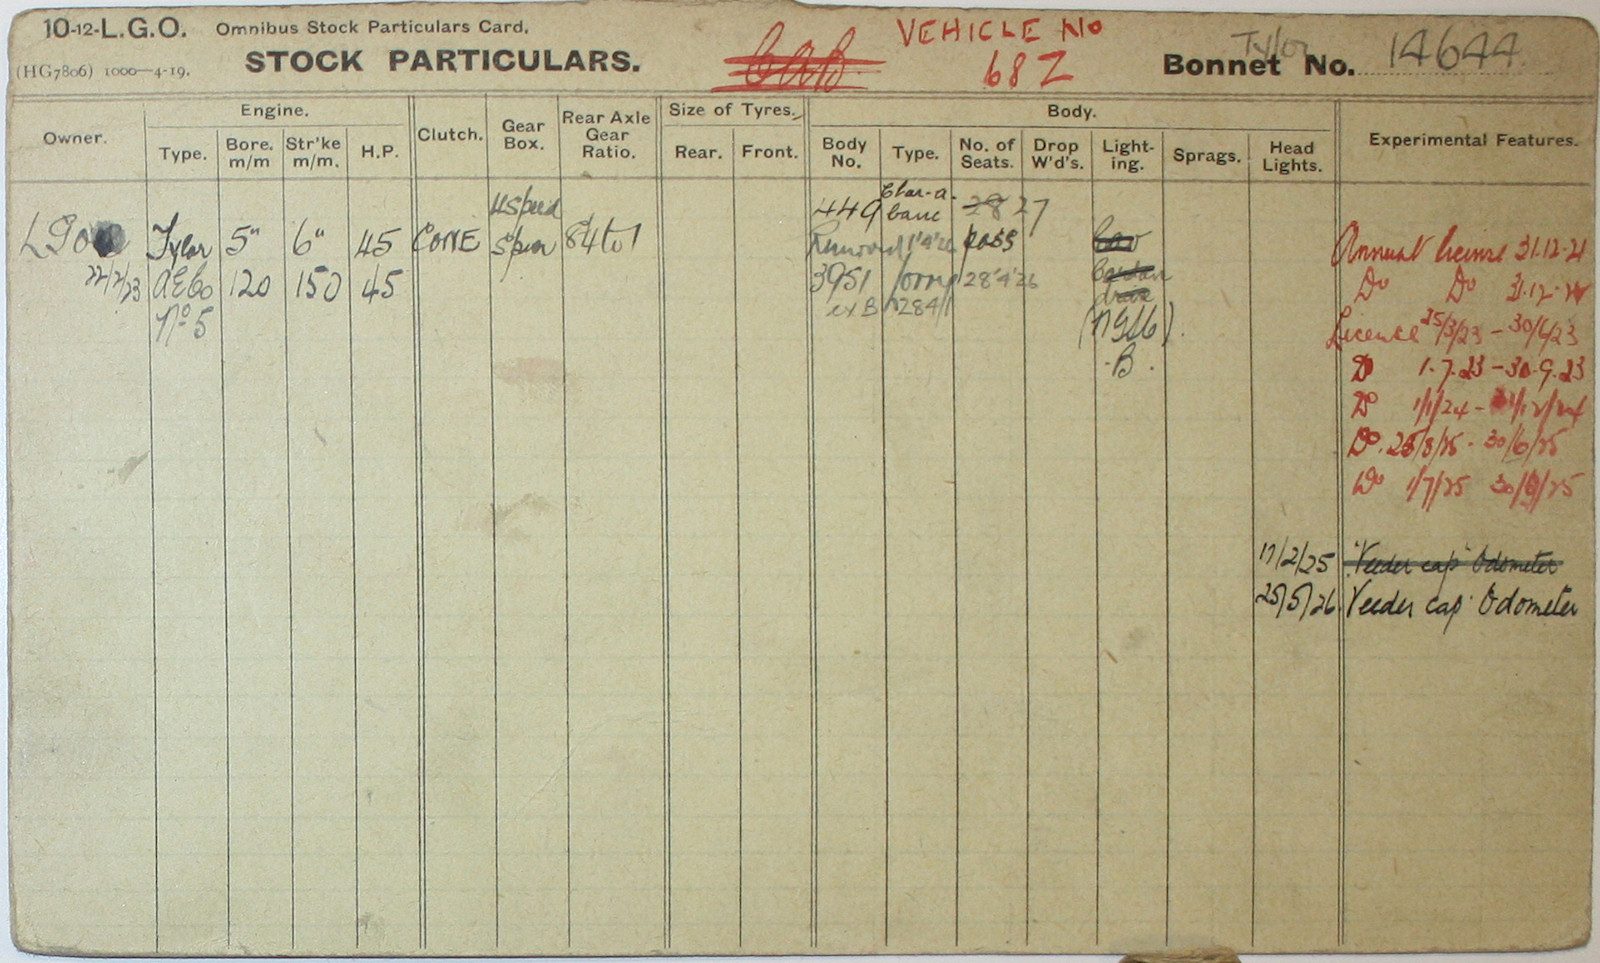 10-12-L.G.O. Omnibus Stock Particulars Card.
(HG7806) 1000—4-19. STOCK PARTICULARS.
VEHICLE NO
68Z
Tylor
Bonnet No. 14644
Owner. Engine. Clutch. Gear Box. Rear Axle Gear Ratio. Size of Tyres. Body. Experimental Features.
Type. Bore. m/m Str'ke m/m. H.P. Rear. Front. Body No. Type. No. of Seats. Drop W'd's. Light-ing. Sprags. Head Lights.
4 Speed 449 Char-a-banc 28 27
LGO Tylor 5" 6" 45 CONE 8.4 to 1 Removed Annual license 31.12.21
22/2/23 AECo 120 150 45 3951 lorry 28'4'26 Do Do 31.12.
No 5 ex B License 25/3/23 - 30/6/23
B. Do 1.7.23 - 30.9.23
Do 1/1/24 - 31/12/24
Do. 25/3/25 - 30/6/25
Do 1/7/25 30/9/25
17/2/25 'Veeder cap' Odometer
25/5/26 Veeder cap Odometer